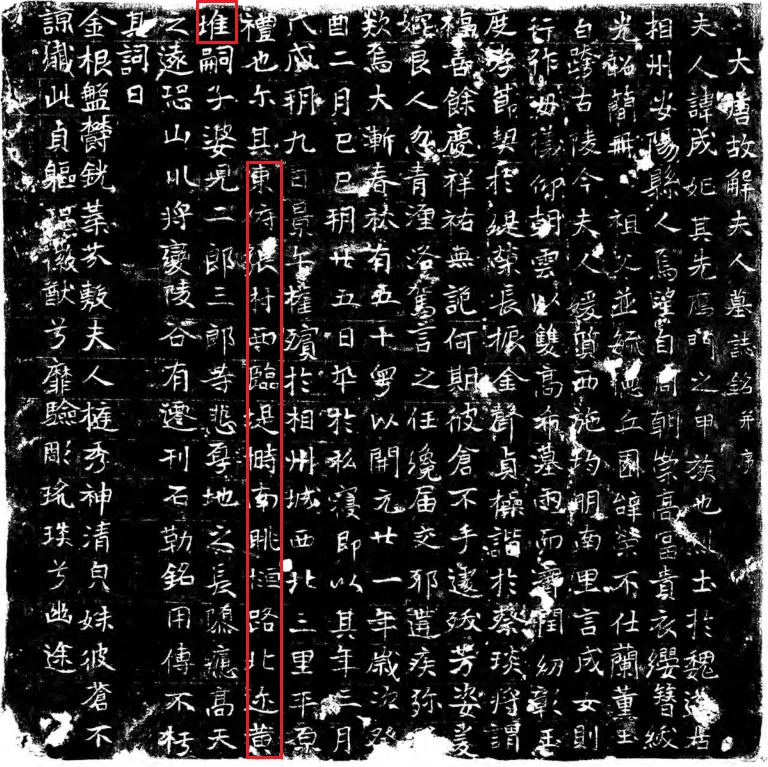 大唐故解夫人墓誌銘并序
夫人諱成妃其先鴈門之甲族也以士於魏遂居
相州安陽縣人焉望自周朝崇高富貴衣纓簪紱
光銘簡冊祖父並毓德丘園辭榮不仕蘭董玉
白跨古陵今夫人緩質西施均明南里言成女則
行作母儀仰朝雲以雙高希墓雨而齊潤幼彰玉
度孝節契於緹縈長振金聲貞操諧於蔡琰將謂
福善餘慶祥祐無記何期彼倉不予遽殁芳姿爰
嬪良人忽青湮洛篤言之任纔届交邪遘疾弥
欻焉大漸春秋有五十粤以開元廿一年歲次癸
酉二月己巳玥廿五日卒於私寢即以其年三月
戊戌玥九日景午權殯於相州城西北三里平原
禮也尒其東侍張村西臨堤塒南眺恒路北近黄
堆嗣子婆兒二郎三郎等悲摹地之長隳癔高天
之遠恐山川將變陵谷有遷刊石勒銘用傳不朽
其詞曰
金根盤欝銑葉芬敷夫人挺秀神清貞姝彼蒼不
諒殱此貞軀徽猷兮靡驗彫琉琰兮幽途